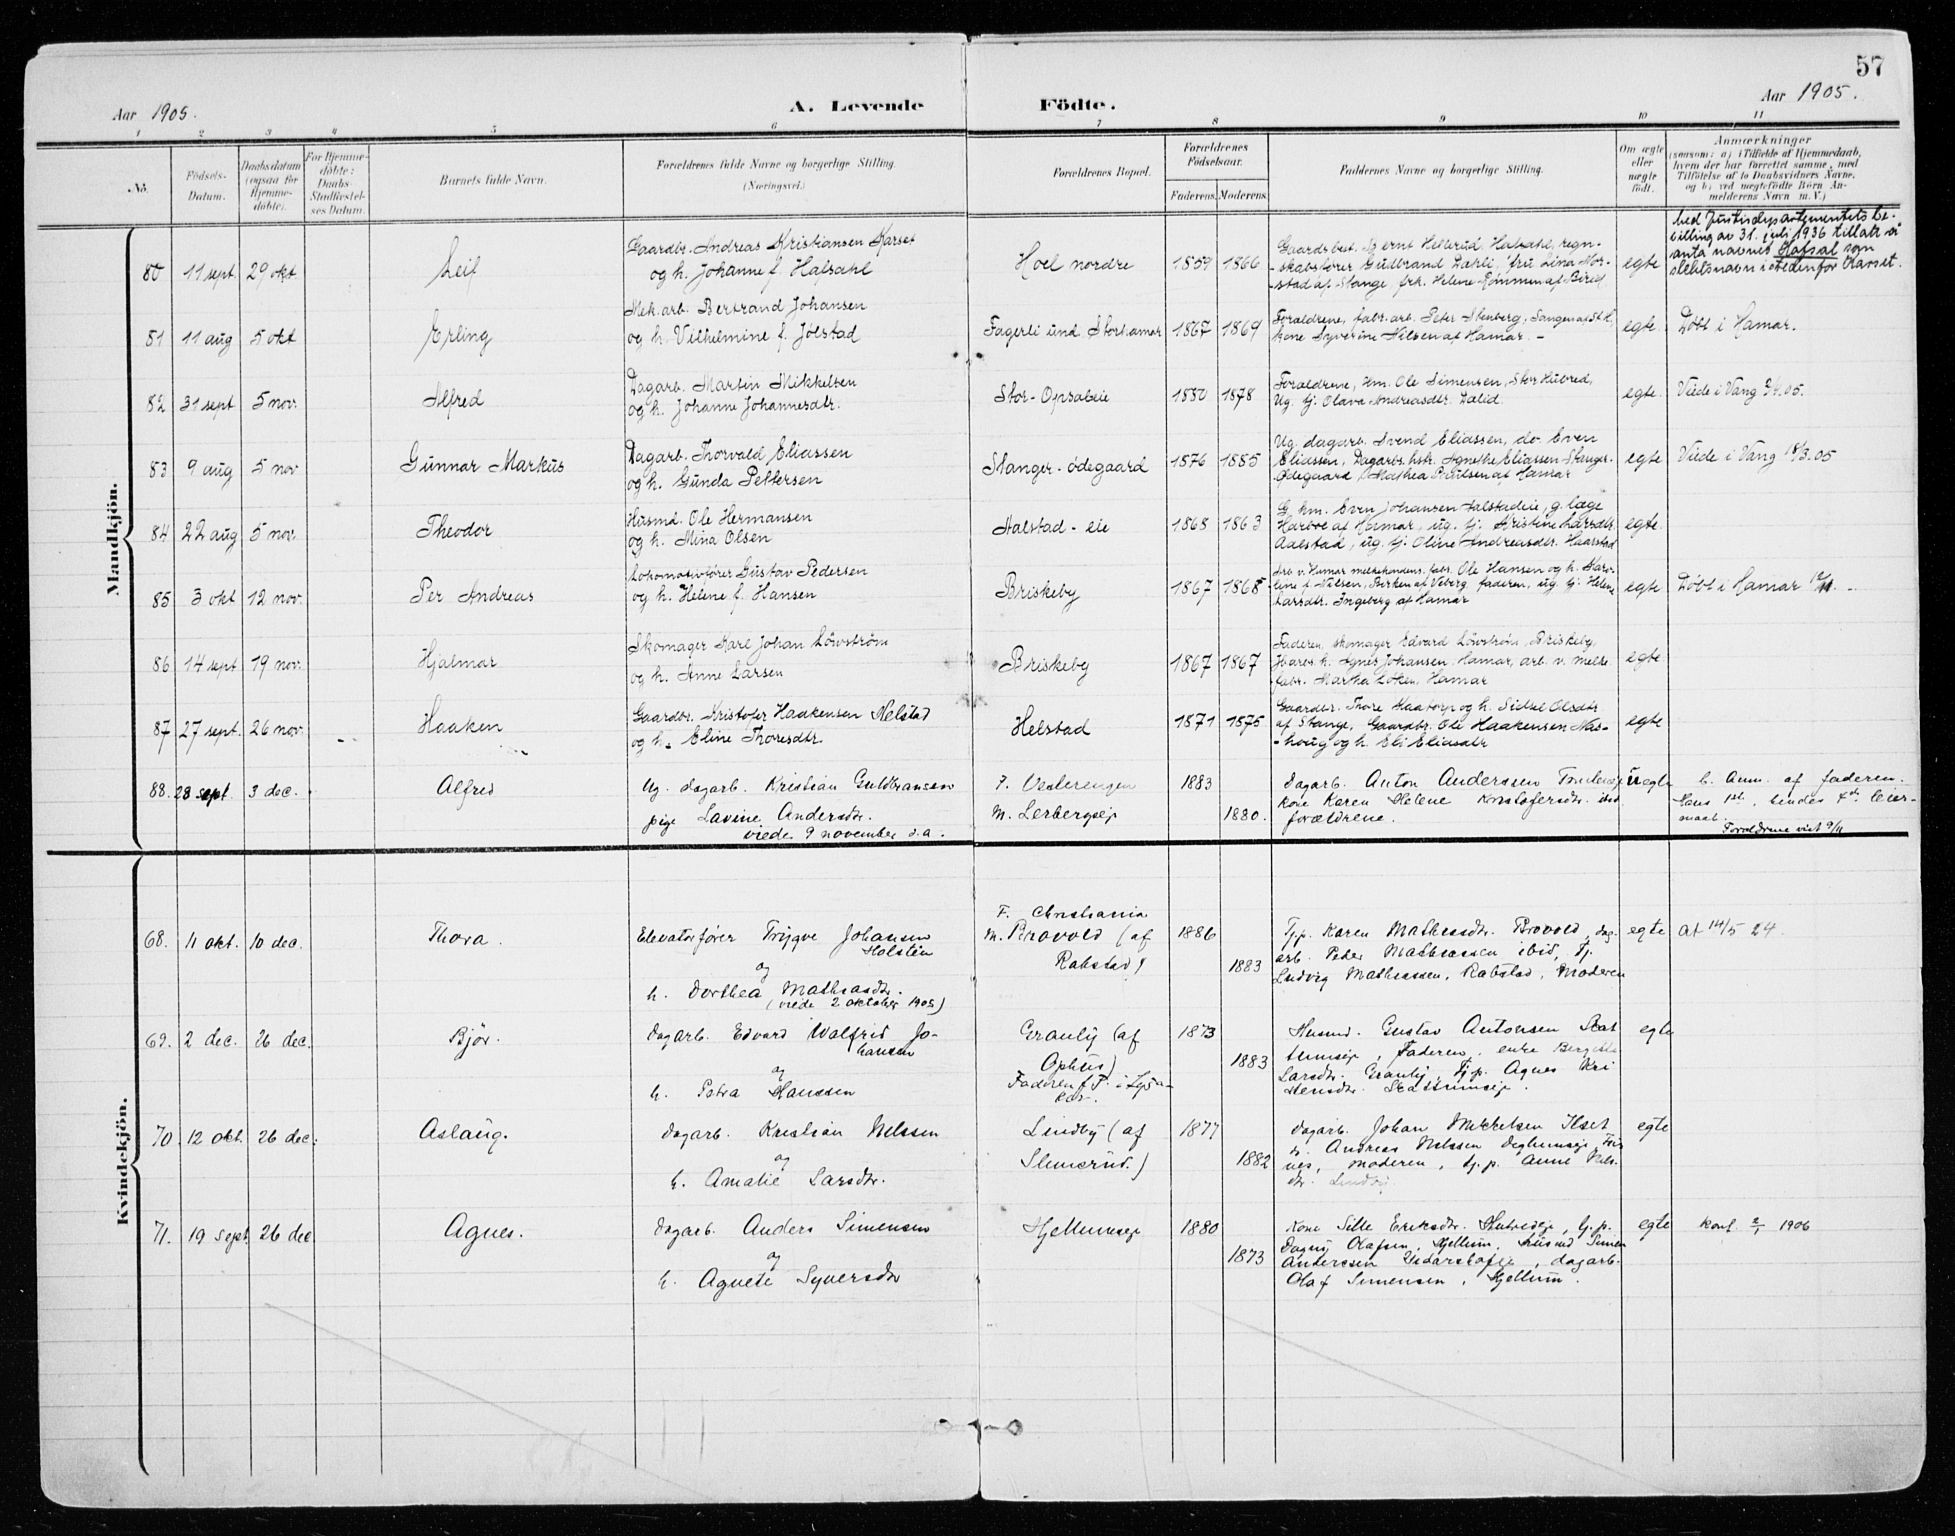 57
Aar 1905.
A. Levende Födte.
Aar 1905.
1 2 3 4 5 6 7 8 9 10 11
No.
Födsels-
Datum.
Daabsdatum
(ogsaa for
Hjemme-
döbte).
For Hjemme-
döbte:
Daabs-
Stadfæstel-
ses Datum.
Barnets fulde Navn.
Forældrenes fulde Navne og borgerlige Stilling.
(Næringsvei.)
Forældrenes Bopæl.
Forældrenes
Födselsaar.
Faderens. Moderens.
Faddernes Navne og borgerlige Stilling.
Om ægte
eller
uægte
födt.
Anmærkninger
(saasom: a) i Tilfælde af Hjemmedaab,
hvem der har forrettet samme, med
Tilföielse af to Daabsvidners Navne,
og b) ved uægtefödte Börn An-
melderens Navn m. V.)
Mandkjön.
80 11 sept 29 okt Leif
Gaardbr. Andreas Kristiansen Karset
og h. Johanne f. Hafsahl
Hoel nordre 1859 1866
Gaardbest. Bernt Hellerud, Hafsahl, regn-
-skabsfører Gudbrand Dahli, fru Lina Mor-
-stad af Stange, frk. Helene Rømmen af Birid
egte
Ved Justisdepartementets be-
villing av 31. juli 1936 tillatt å
anta navnet Hafsal som
slektsnavn i stedenfor Karset.
81 11 aug 5 okt Erling
Mek. arb. Bertrand Johansen
og h. Vilhelmine f. Jølstad
Fagerli und. Storhamar 1867 1869
Forældrene, fabr. arb. Peter Stenberg, Sangen af St. H.,
kone Syverine Nilsen af Hamar. -
egte. Døbt i Hamar.
82 31 sept 5 nov. Alfred
Dagarb. Martin Mikkelsen
og h. Johanne Johannesdtr.
Stor-Opsaleie 1880 1878
Forældrene, hm. Ole Simensen, Stor Huбred,
Ug. tj. Olava Andreasdtr. Dælid.
egte. Viede i Vang 2/4.05.
83 9 aug 5 nov Gunnar Markus
Dagarb. Thorvald Eliassen
og h. Gunda Pettersen
Stanger-ødegaard 1876 1885
Ug. dagarb. Svend Eliassen, do Even
Eliassen, Dagarbs. hstr. Agnethe Eliassen Stanger-
Ødegaard, Mathea Paulsen af Hamar
egte Viede i Vang 18/3.05
84 22 aug 5 nov. Theodor
Husmd. Ole Hermansen
og h. Mina Olsen
Aalstad-eie 1868 1863
G. hm. Even Johansen Aalstadeie, g. læge
Harboe af Hamar, ug. tj. Kristine Larsdtr.
Aalstad, ug. tj. Oline Andreasdtr. Haarstad
egte
85 3 okt 12 nov. Per Andreas
Lokomotivfører Gustav Pedersen
og h. Helene f. Hansen
Briskeby 1867 1868
Arb. v. Hamar melkekondens. fabr. Ole Hansen og h. Karo-
line f. Nilsen, Birken af Veberg, faderen, ug. tj. Helene
Larsdtr. Ingeberg af Hamar
egte Døbt i Hamar 12/11.
86 14 sept 19 nov. Hjalmar
Skomager Karl Johan Löwström
og h. Anne Larsen
Briskeby 1867 1867
Faderen, skomager Edvard Löwström, Briskeby,
Agnes Johansen, Hamar, arb. v. melke-
fabr. Martha Løken, Hamar
egte
87 27 sept. 26 nov. Haaken
Gaardbr. Kristofer Haakensen Helstad
og h. Eline Thoresdtr.
Helstad 1871 1875
Gaardbr. Thore Kaatorp og h. Sidsel Olsdtr
af Stange, Gaardbr. Ole Haakensen Næs-
-houg og h. Eli Eliasdtr
egte
88. 28 sept. 3 dec. Alfred
Ug. dagarb. Kristian Guldbransen
pige Lavine Andersdtr.
viede 9 november d.a.
F. Vesterengen
M. Lerbergseje
1883 1880.
Dagarb. Anton Anderssen
kone Karen Helene Kristofersdtr. ibid
forældrene.
uegte
b. Anm. af faderen.
Hans 1st, hendes leier-
maal. Forældrene viet 9/11
Kvindekjön.
68. 11 okt. 10 dec. Thora.
Elevatorfører Trygve Johansen
Holstein
og
h. Dorthea Mathiasdtr.
(viede 2 oktober 1905)
F. Christiania
M. Brovold (af
Rabstad)
1886 1883
Tj.p. Karen Mathiasdtr. Brovold, dag-
arb. Peder Mathiassen ibid, tj.
Ludvig Mathiassen, Rabstad, Moderen
egte at 14/5 24.
69. 2 dec. 26 dec. Bjør.
Dagarb. Edvard Walfrid Jo-
hansen
og
h. Petra Hanssen
Granly (af
Ophus)
Faderen f. P. i Lysa-
ker.
1873 1883
Husmd. Gustav Antonsen
Faderen, enke
Larsdtr. Granly, Tj.p. Agnes
egte
70. 12 okt. 26 dec. Aslaug.
Dagarb. Kristian Nilssen
og
h. Amalie Larsdtr.
Lindby (af
Slemsrud.)
1877 1882
Dagarb. Johan Mikkelsen Ilset
Andreas Nilssen
moderen, tj.p. Anne Nils-
dtr. Lindby.
egte
71. 19 sept. 26 dec. Agnes.
Dagarb. Anders Simensen
og
h. Agnete Syversdtr
Hjellumseje 1880 1873
Kone Sille Eriksdtr. Hubredeje, tj.p.
Dagny Olafsen, Hjellum, husmd Simen
Anderssen dagarb.
Olaf Simensen, Hjellum.
egte konf. 2/1 1906